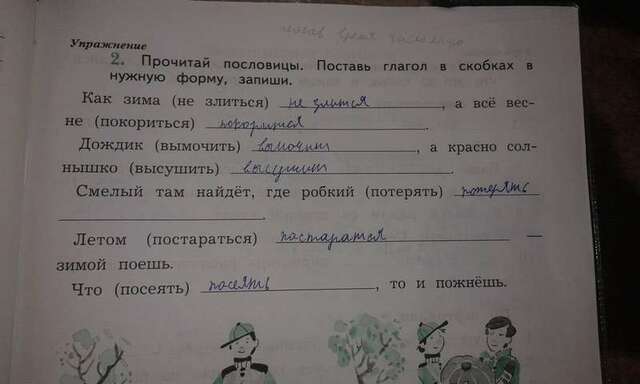 Упражнение
2. Прочитай пословицы. Поставь глагол в скобках в
нужную форму, запиши.
Как зима (не злиться) не злится, а всё вес-
не (покориться) покорится.
Дождик (вымочить) вымочит, а красно сол-
нышко (высушить) высушит.
Смелый там найдёт, где робкий (потерять) потерять
.
Летом (постараться) постаратся —
зимой поешь.
Что (посеять) посеять, то и пожнёшь.